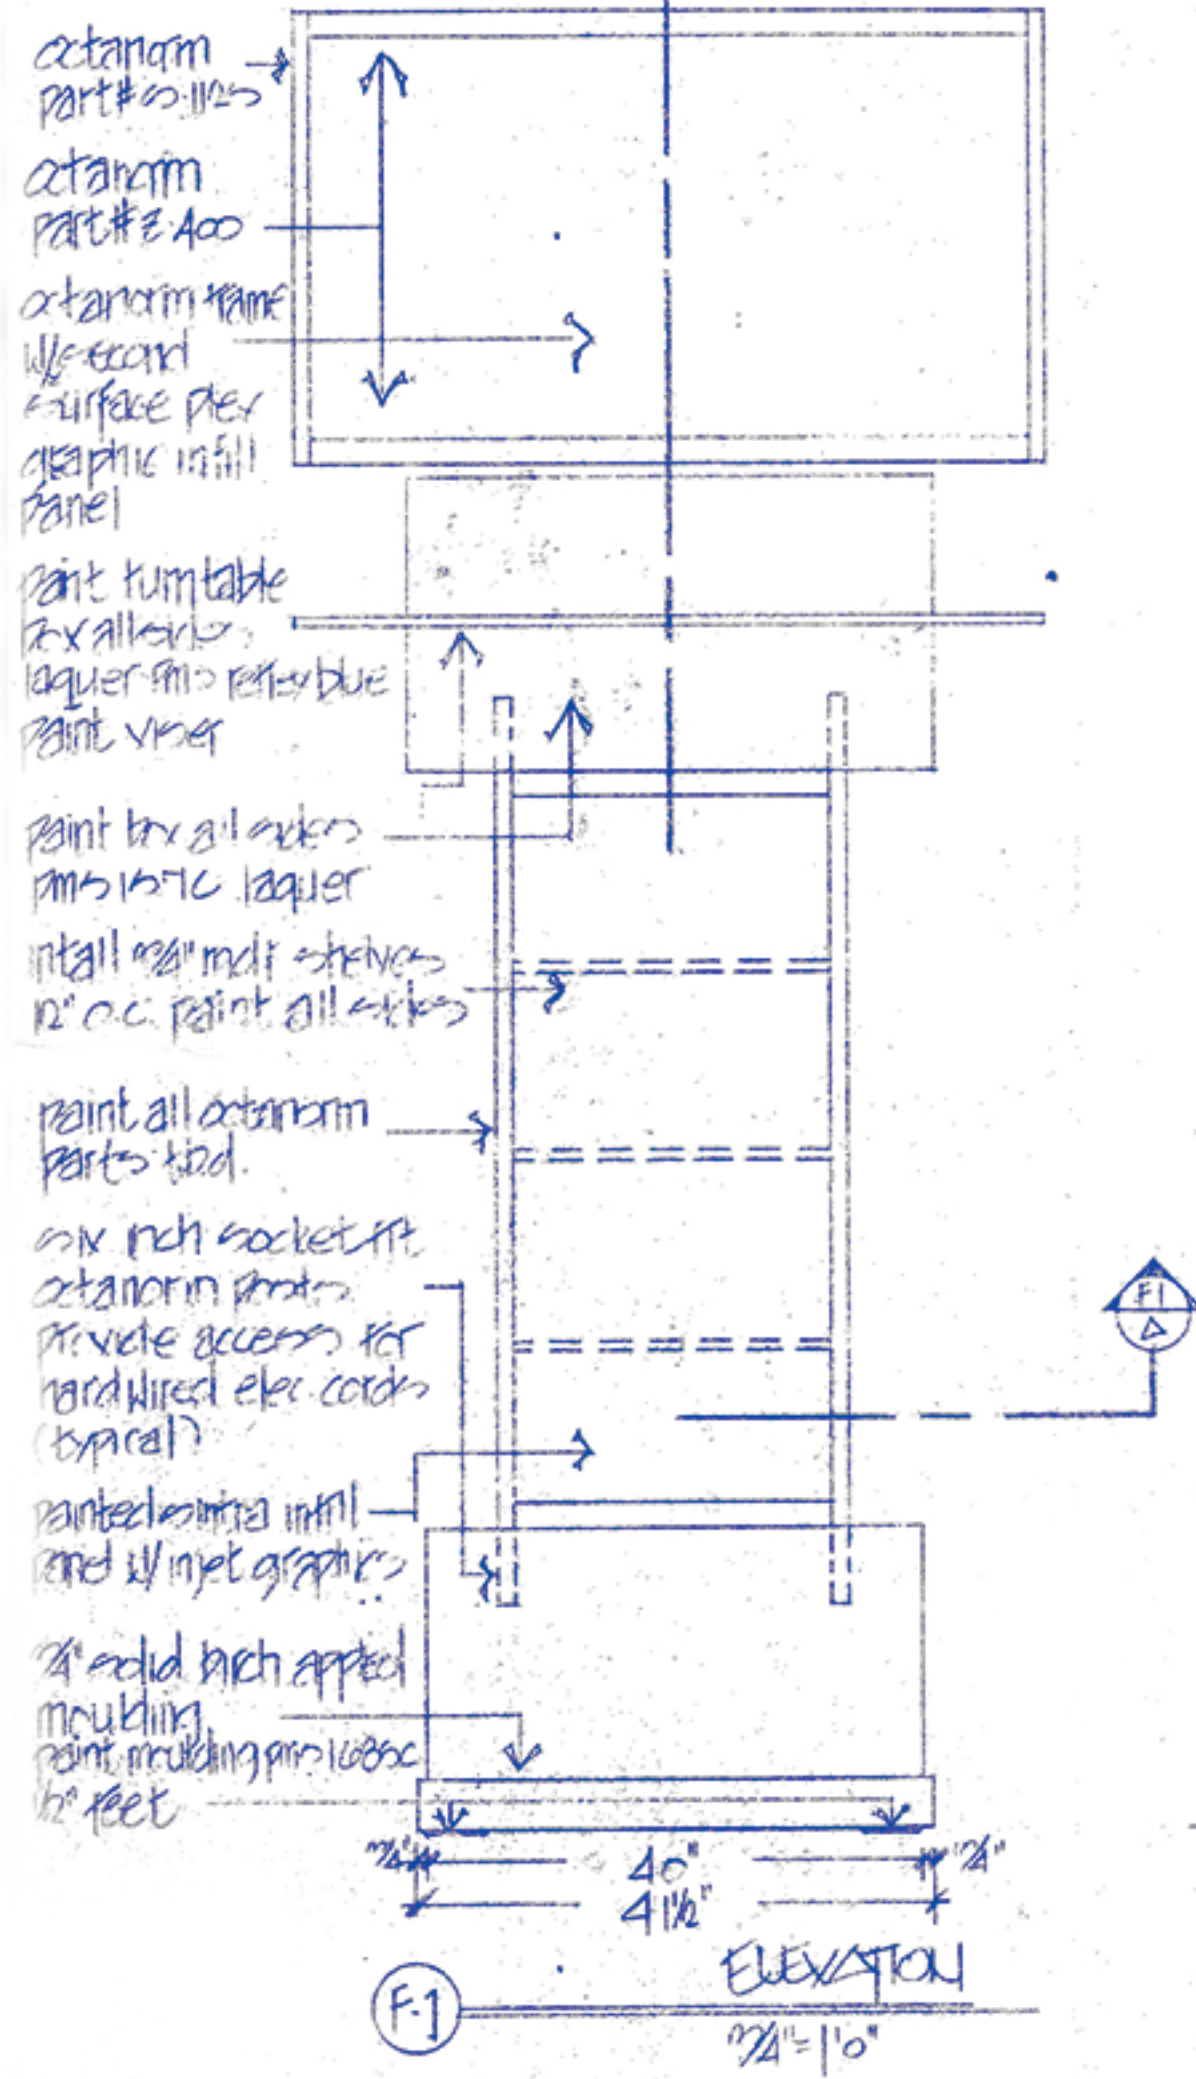 octanorm
part# S.1125
octanorm
part# Z.400
octanorm frame
w/second
surface plex
graphic infill
panel
paint turntable
box all sides
laquer PMS reflex blue
paint viser
paint box all sides
pms 157C laquer
intall 3/4" mdf shelves
12" o.c. paint all sides
paint all octanorm
parts t.b.d.
six inch socket fit
octanorm posts
provide access for
hardwired elec. cords
(typical)
painted sintra infill
panel w/ injet graphics
3/4" solid birch applied
moulding
paint moulding pms 1685c
1/2" feet
F1
3/4" 40" 3/4"
41 1/2"
F.1 ELEVATION
3/4"=1'0"